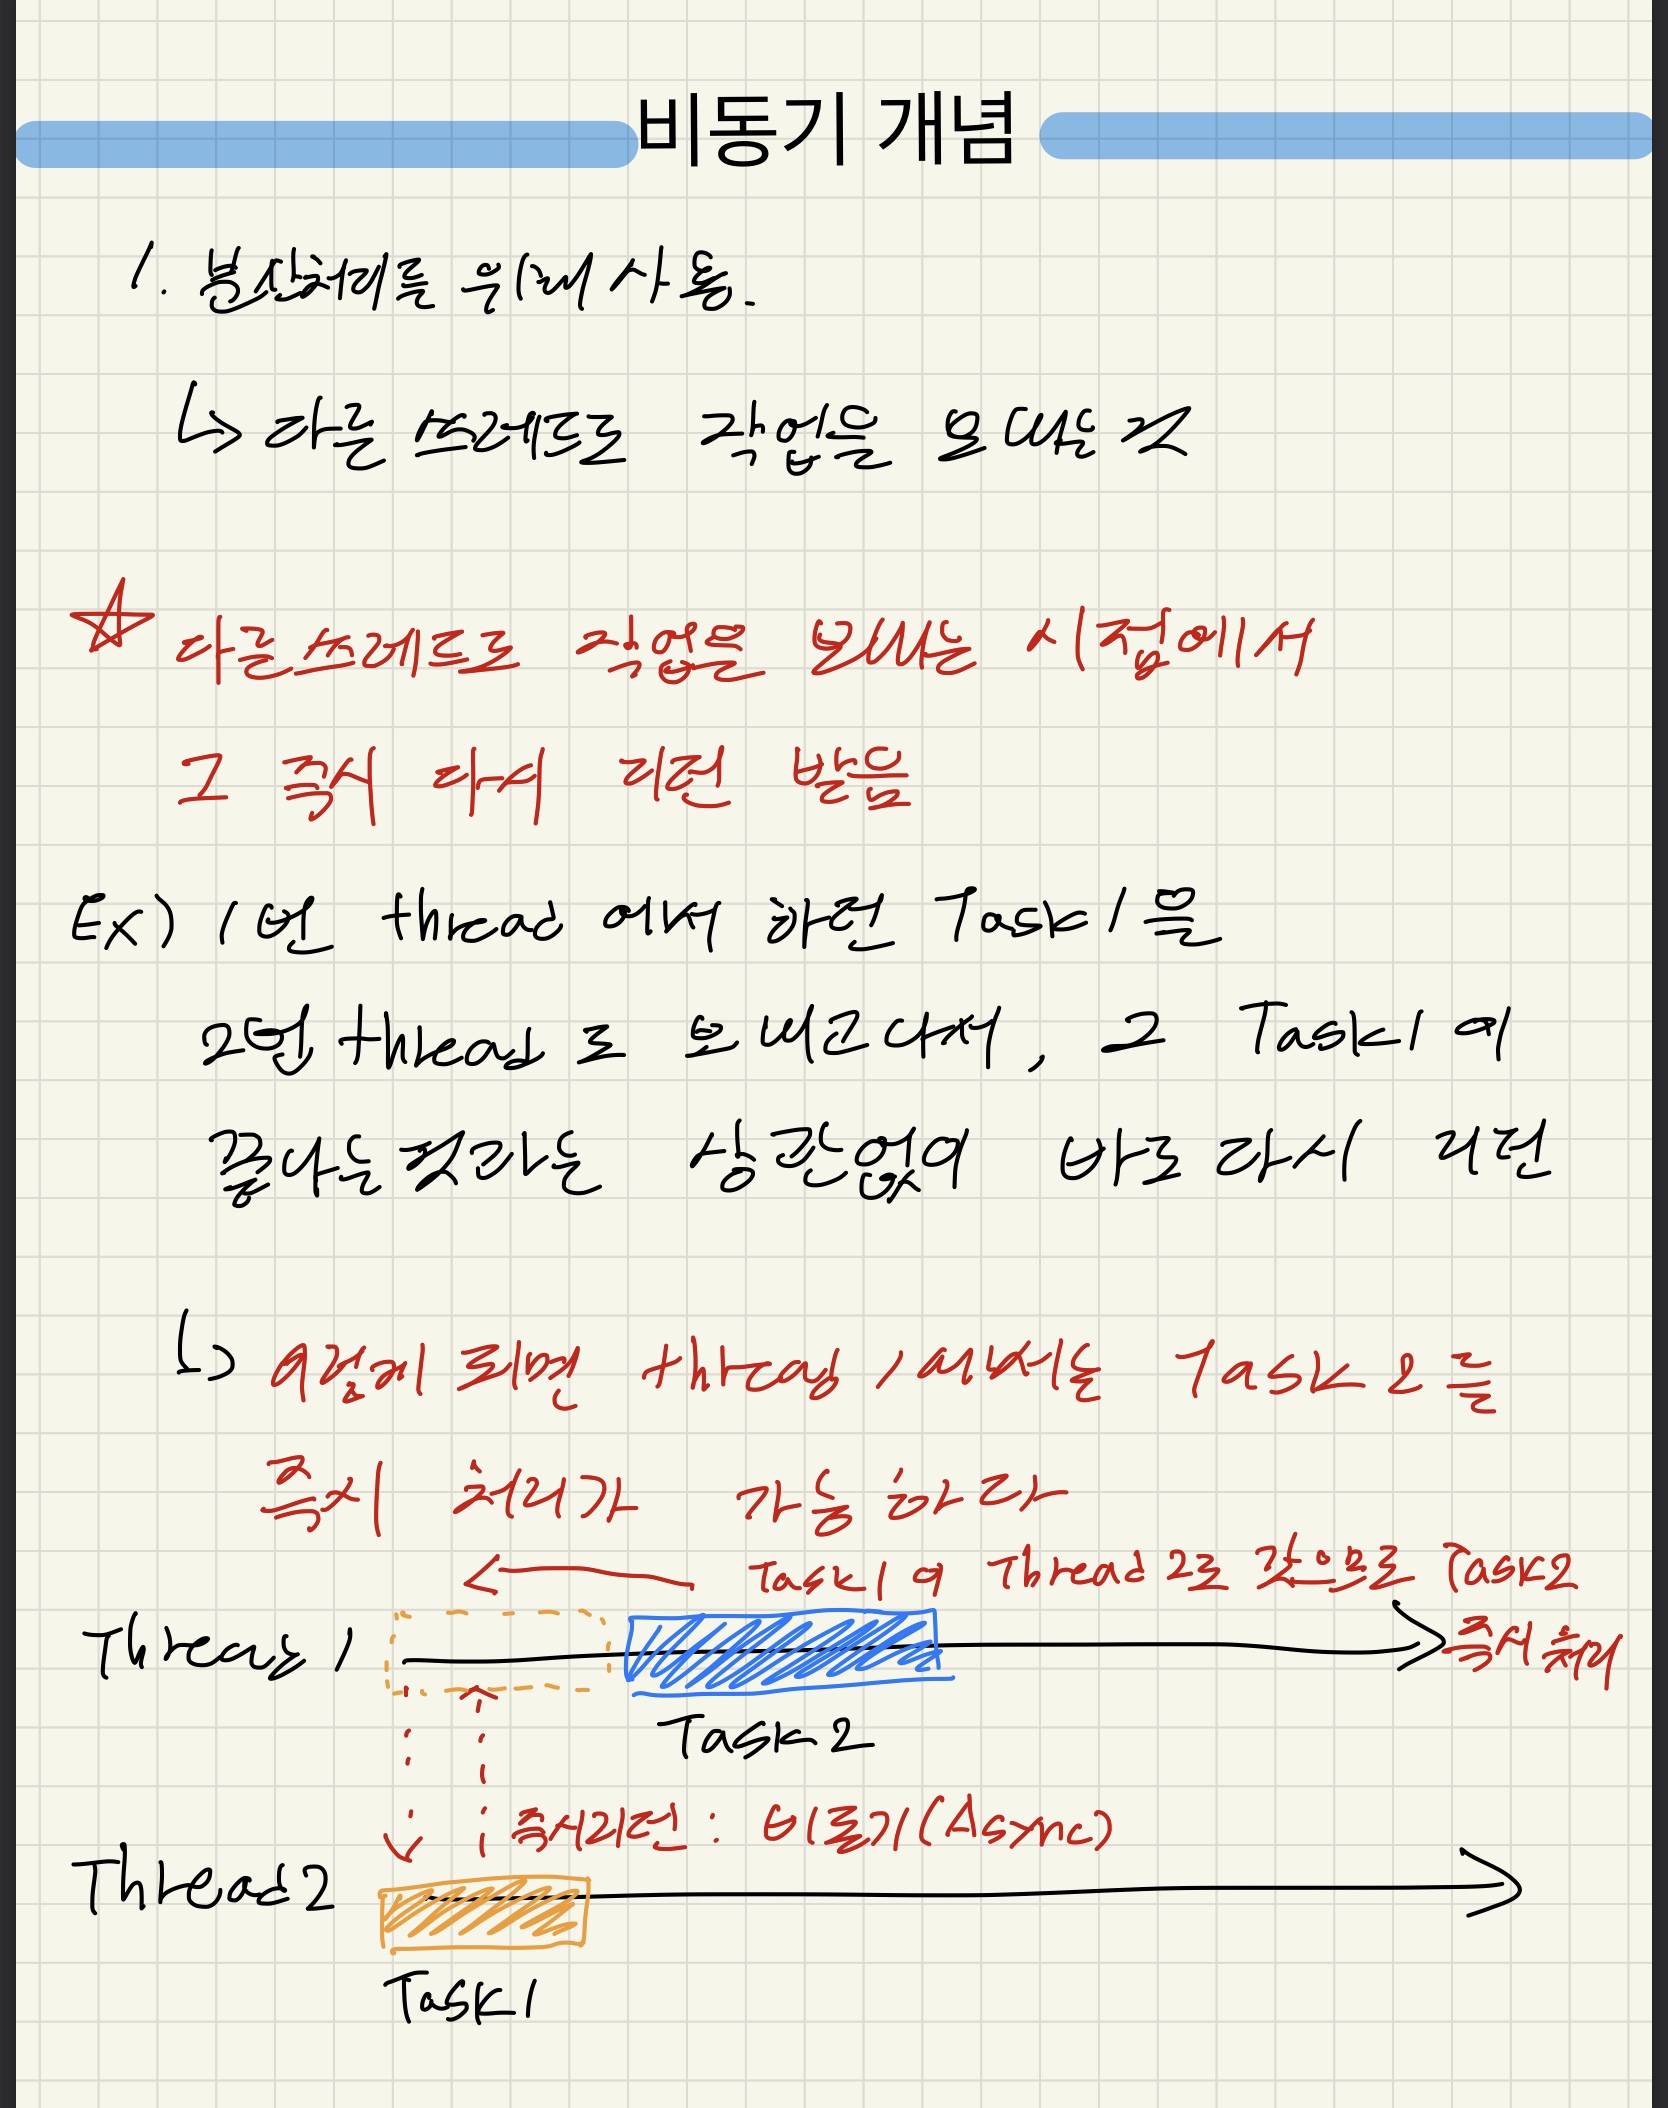 비동기 개념
1. 분산처리를 위해 사용.
↳ 다른 쓰레드로 작업을 보내는 것
☆ 다른 쓰레드로 작업을 보내는 시점에서
그 즉시 다시 리턴 받음
Ex) 1번 thread 에서 하던 Task1을
2번 thread로 보내고나서, 그 Task1이
끝나는것과는 상관없이 바로 다시 리턴
↳ 이렇게 되면 thread 1에서는 Task2를
즉시 처리가 가능하다
← Task1이 Thread2로 갔으므로 Task2
즉시 처리
Thread 1
Task2
즉시리턴 : 비동기(Async)
Thread2
Task1